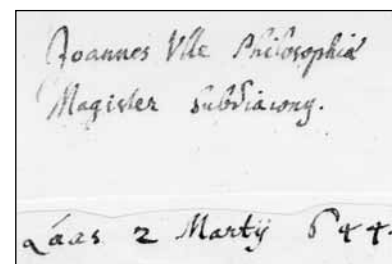 Joannes Vlle Philosophiæ
Magister Subdiaconq.
Láas 2 Martij 644.